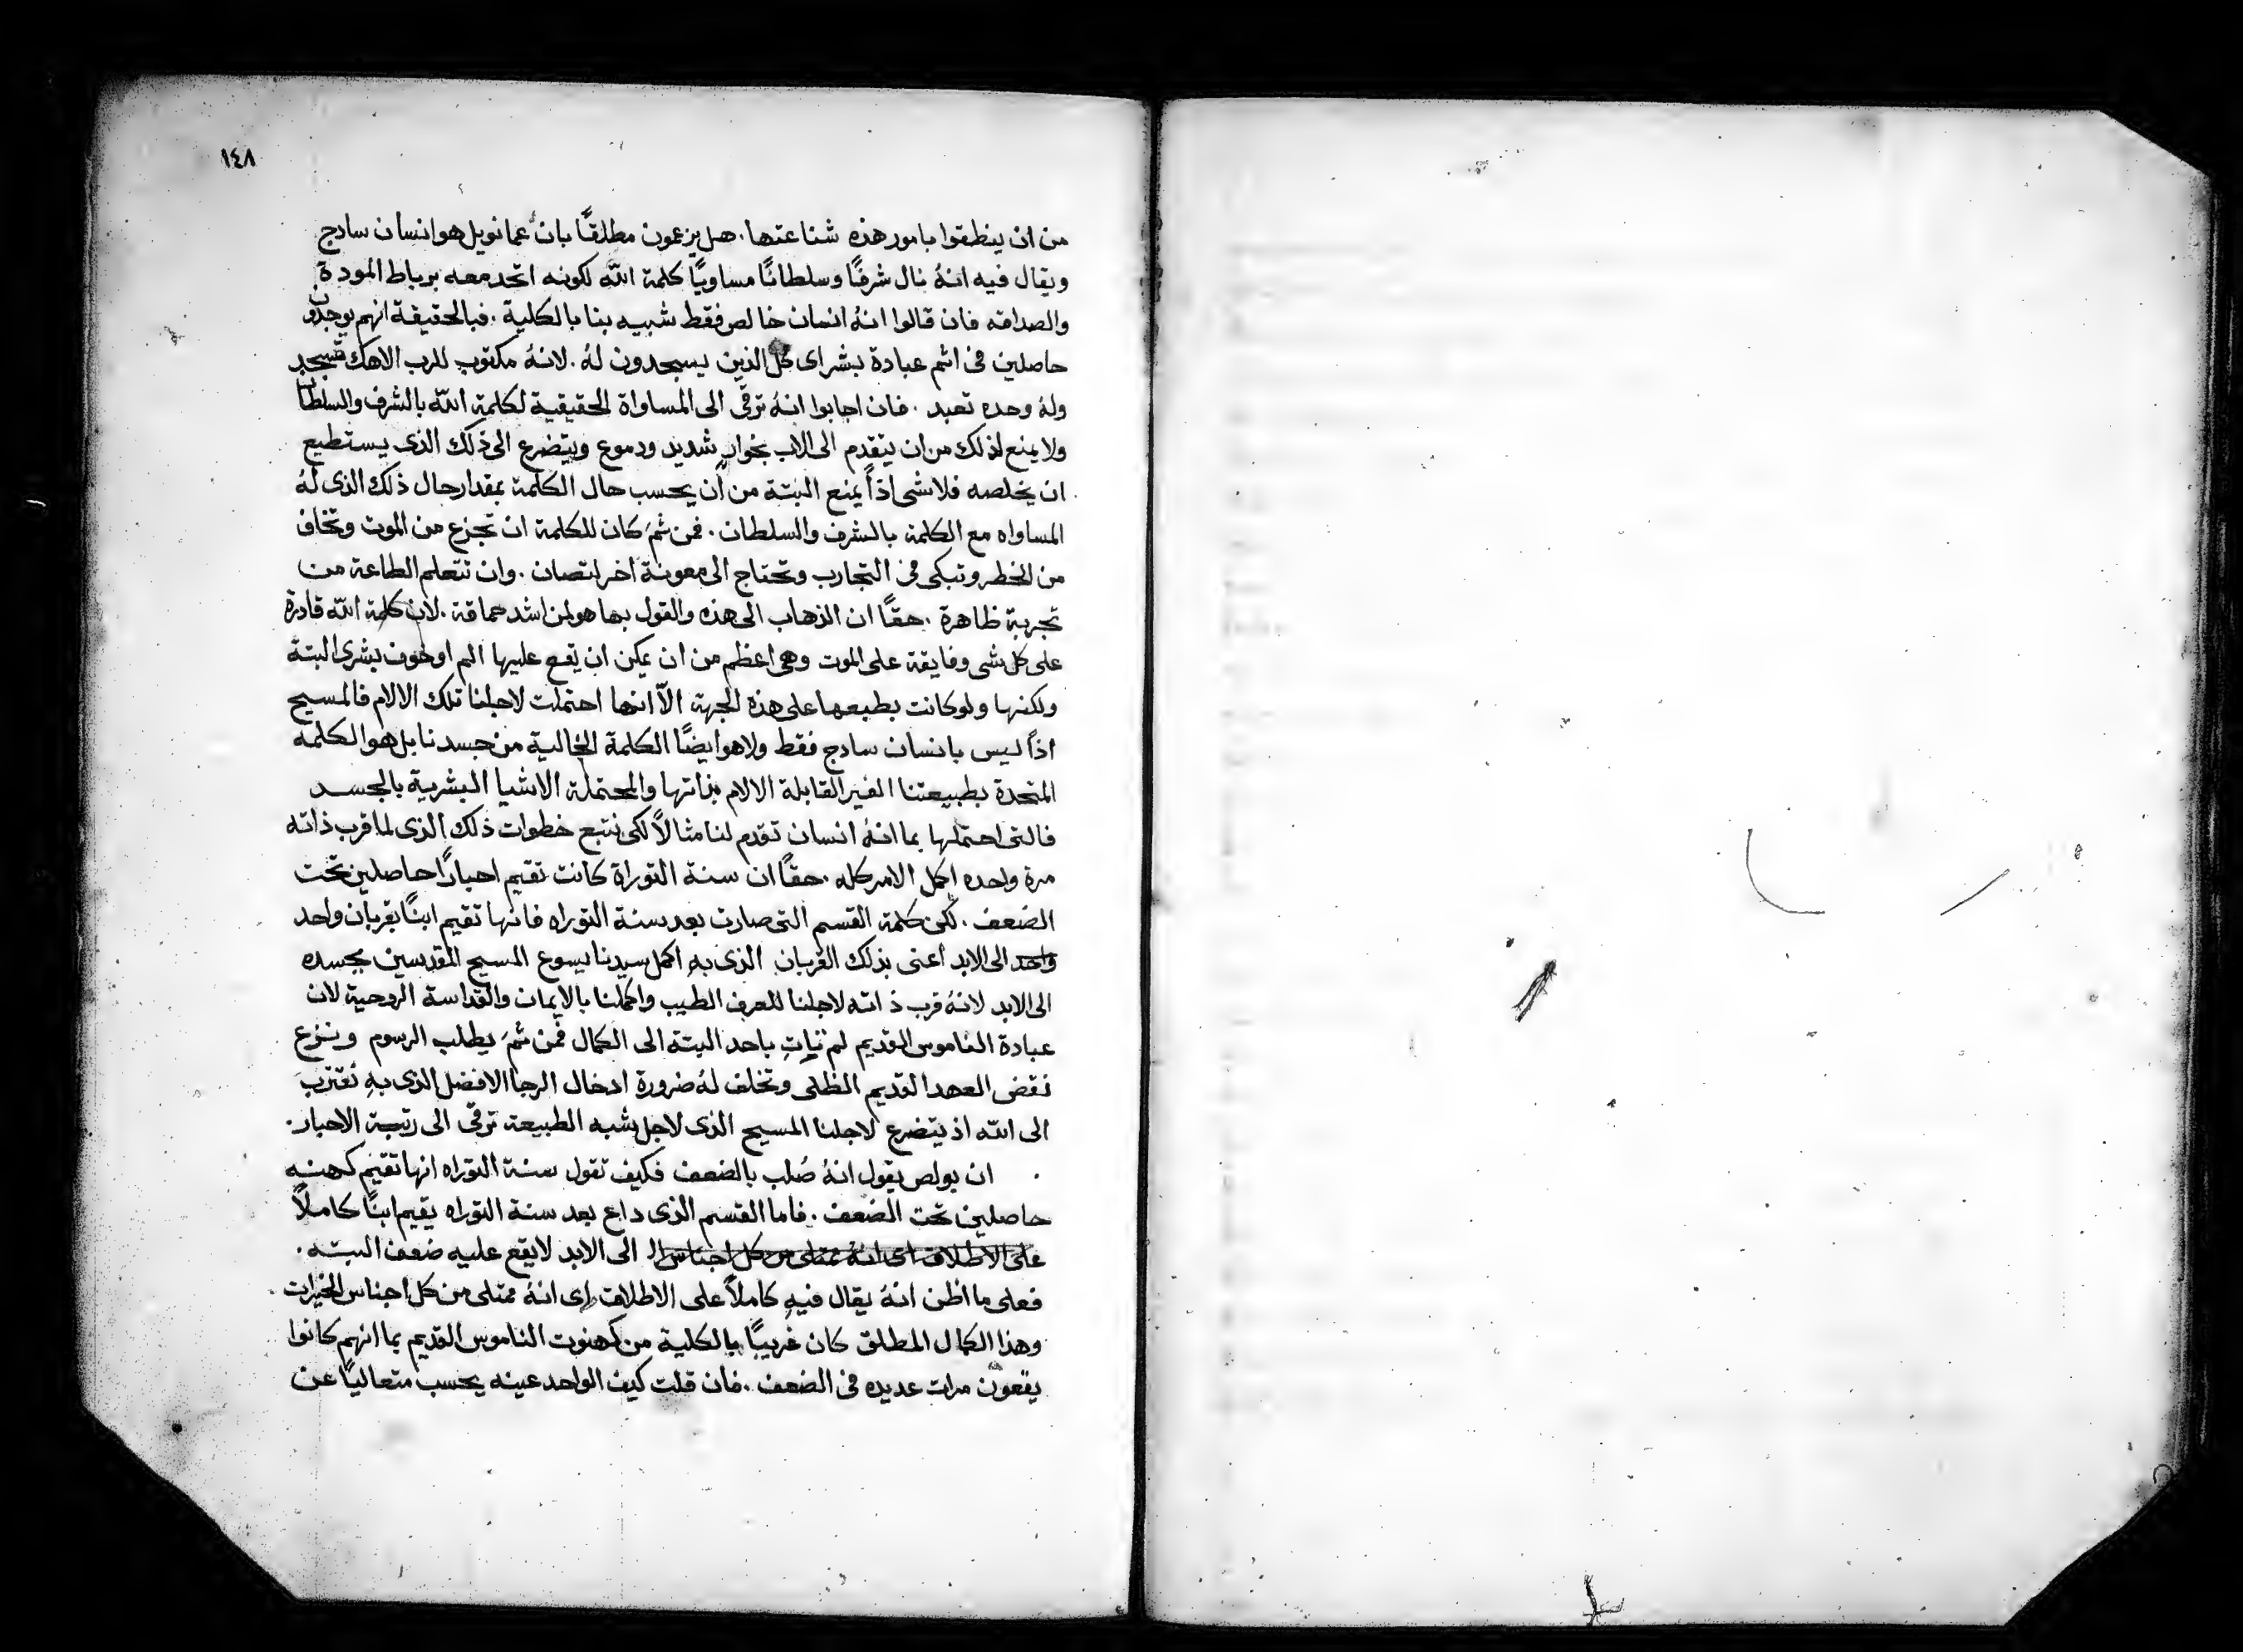 ١٤٨
من ان ينطقوا بامور هذه شناعتها. هل يزعمون مطلقًا بان عمانويل هو انسان سادج
ويقال فيه انهُ نال شرفًا وسلطانًا مساويًا كلمة اللّه لكونه اتحد معه برباط المودة
والصداقه فان قالوا انهُ انسان خالص فقط شبيه بنا بالكلية. فبالحقيقة انهم يوجدون
حاصلين فى اثم عبادة بشر اى كل الذين يسجدون لهُ. لانهُ مكتوب للرب الاهك تسجد
ولهُ وحده تعبد. فان اجابوا انهُ ترقّى الى المساواة الحقيقية لكلمة اللّه بالشرف والسلطان
ولا يمنع لذلك من ان يتقدم الى الاب بخوار شديد ودموع ويتضرع الى ذلك الذى يستطيع
ان يخلصه فلا شى اذاً يمنع البتة من ان يحسب حال الكلمة بمقدار حال ذلك الذى لهُ
المساواه مع الكلمة بالشرف والسلطان. فمن ثمَ كان للكلمة ان تجزع من الموت وتخاف
من الخطر وتبكى فى التجارب وتحتاج الى معونة اخر لتصان. وان تتعلم الطاعة من
تجربة ظاهرة. حقًا ان الذهاب الى هذه والقول بها هو لمن اشد حماقة. لان كلمة اللّه قادرة
على كل شى وفايقة على الموت وهى اعظم من ان يمكن ان يقع عليها الم او خوف بشرى البتة
ولكنها ولو كانت بطبعها على هذه الجهة الاّ انها احتملت لاجلنا تلك الالام فالمسيح
اذاً ليس بانسان سادج فقط ولا هو ايضًا الكلمة الخالية من جسدنا بل هو الكلمة
المتحدة بطبيعتنا الغير القابلة الالام بذاتها والمحتملة الاشيا البشرية بالجسد
فالتى احتملها بما انهُ انسان تقدم لنا مثالاً لكى نتبع خطوات ذلك الذى لما قرب ذاته
مرة واحده اكمل الامر كله. حقًا ان سنة التوراة كانت تقيم احبارًا حاصلين تحت
الضعف. لكن كلمة القسم التى صارت بعد سنة التوراه فانها تقيم ابنًا بقربان واحد
واحد الى الابد اعنى بذلك القربان الذى به اكمل سيدنا يسوع المسيح المقدسين بجسده
الى الابد لانهُ قرب ذاته لاجلنا للعرف الطيب واكملنا بالايمان والقداسة الروحية لان
عبادة الناموس القديم لم تاتِ باحد البتة الى الكمال فمن ثمَ يطلب الرسوم ونزع
نقض العهد القديم الظلى وتخلف لهُ ضرورة ادخال الرجا الافضل الذى بهِ نقترب
الى اللّه اذ يتضرع لاجلنا المسيح الذى لاجل شبه الطبيعة ترقّى الى رتبة الاحبار.
ان بولص يقول انهُ صُلب بالضعف فكيف تقول سنة التوراه انها تقيم كهنه
حاصلين تحت الضعف. فاما القسم الذى داع بعد سنة التوراه يقيم ابنًا كاملاً
على الاطلاق اى انهُ ممتلى من كل اجناس ال الى الابد لا يقع عليه ضعف البتة.
فعلى ما اظن انهُ يقال فيهِ كاملاً على الاطلاق اى انهُ ممتلى من كل اجناس الخيرات
وهذا الكمال المطلق كان غريبًا بالكلية من كهنوت الناموس القديم بما انهم كانوا
يقعون مرات عديده فى الضعف. فان قلت كيف الواحد عينه يحسب متعاليًا عن